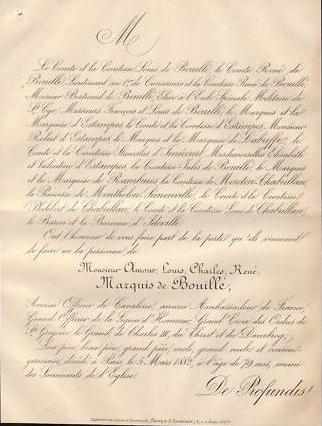 M
Le Comte et la Comtesse Louis de Bouillé, le Comte René de
Bouillé Lieutenant au de Cuirassiers et la Comtesse René de Bouillé,
Monsieur Bertrand de Bouillé, Elève à l'Ecole Spéciale Militaire de
St Cyr, Messieurs François et Louis de Bouillé, le Marquis et la
Marquise d'Estampes, le Comte et la Comtesse d'Estampes, Monsieur
Robert d'Estampes, le Marquis et la Marquise de
le Comte et la Comtesse Stanislas d'Amécourt, Mesdemoiselles Elisabeth
et Valentine d'Estampes, la Comtesse Jules de Bouillé, le Marquis
et la Marquise de Rambures, la Comtesse de Moreton-Chabrillan,
la Baronne de le Comte et la Comtesse
de Chabrillan, le Comte et la Comtesse Louis de Chabrillan,
le Baron et la Baronne d'Ideville
Ont l'honneur de vous faire part de la perte qu'ils viennent
de faire en la personne de
Monsieur Amour, Louis, Charles, René,
Marquis de Bouillé,
Ancien Officier de Cavalerie, ancien Ambassadeur de France,
Grand Officier de la Légion d'Honneur, Grand Croix des Ordres de
St Grégoire le Grand, de Charles III, du Christ et de Danebrog,
Leur père, beau-père, grand-père, oncle, grand-oncle et cousin-
germain, décédé à Paris, le 5 Mars 1882, à l'âge de 79 ans, muni
des Sacrements de l'Eglise.
De Profundis!